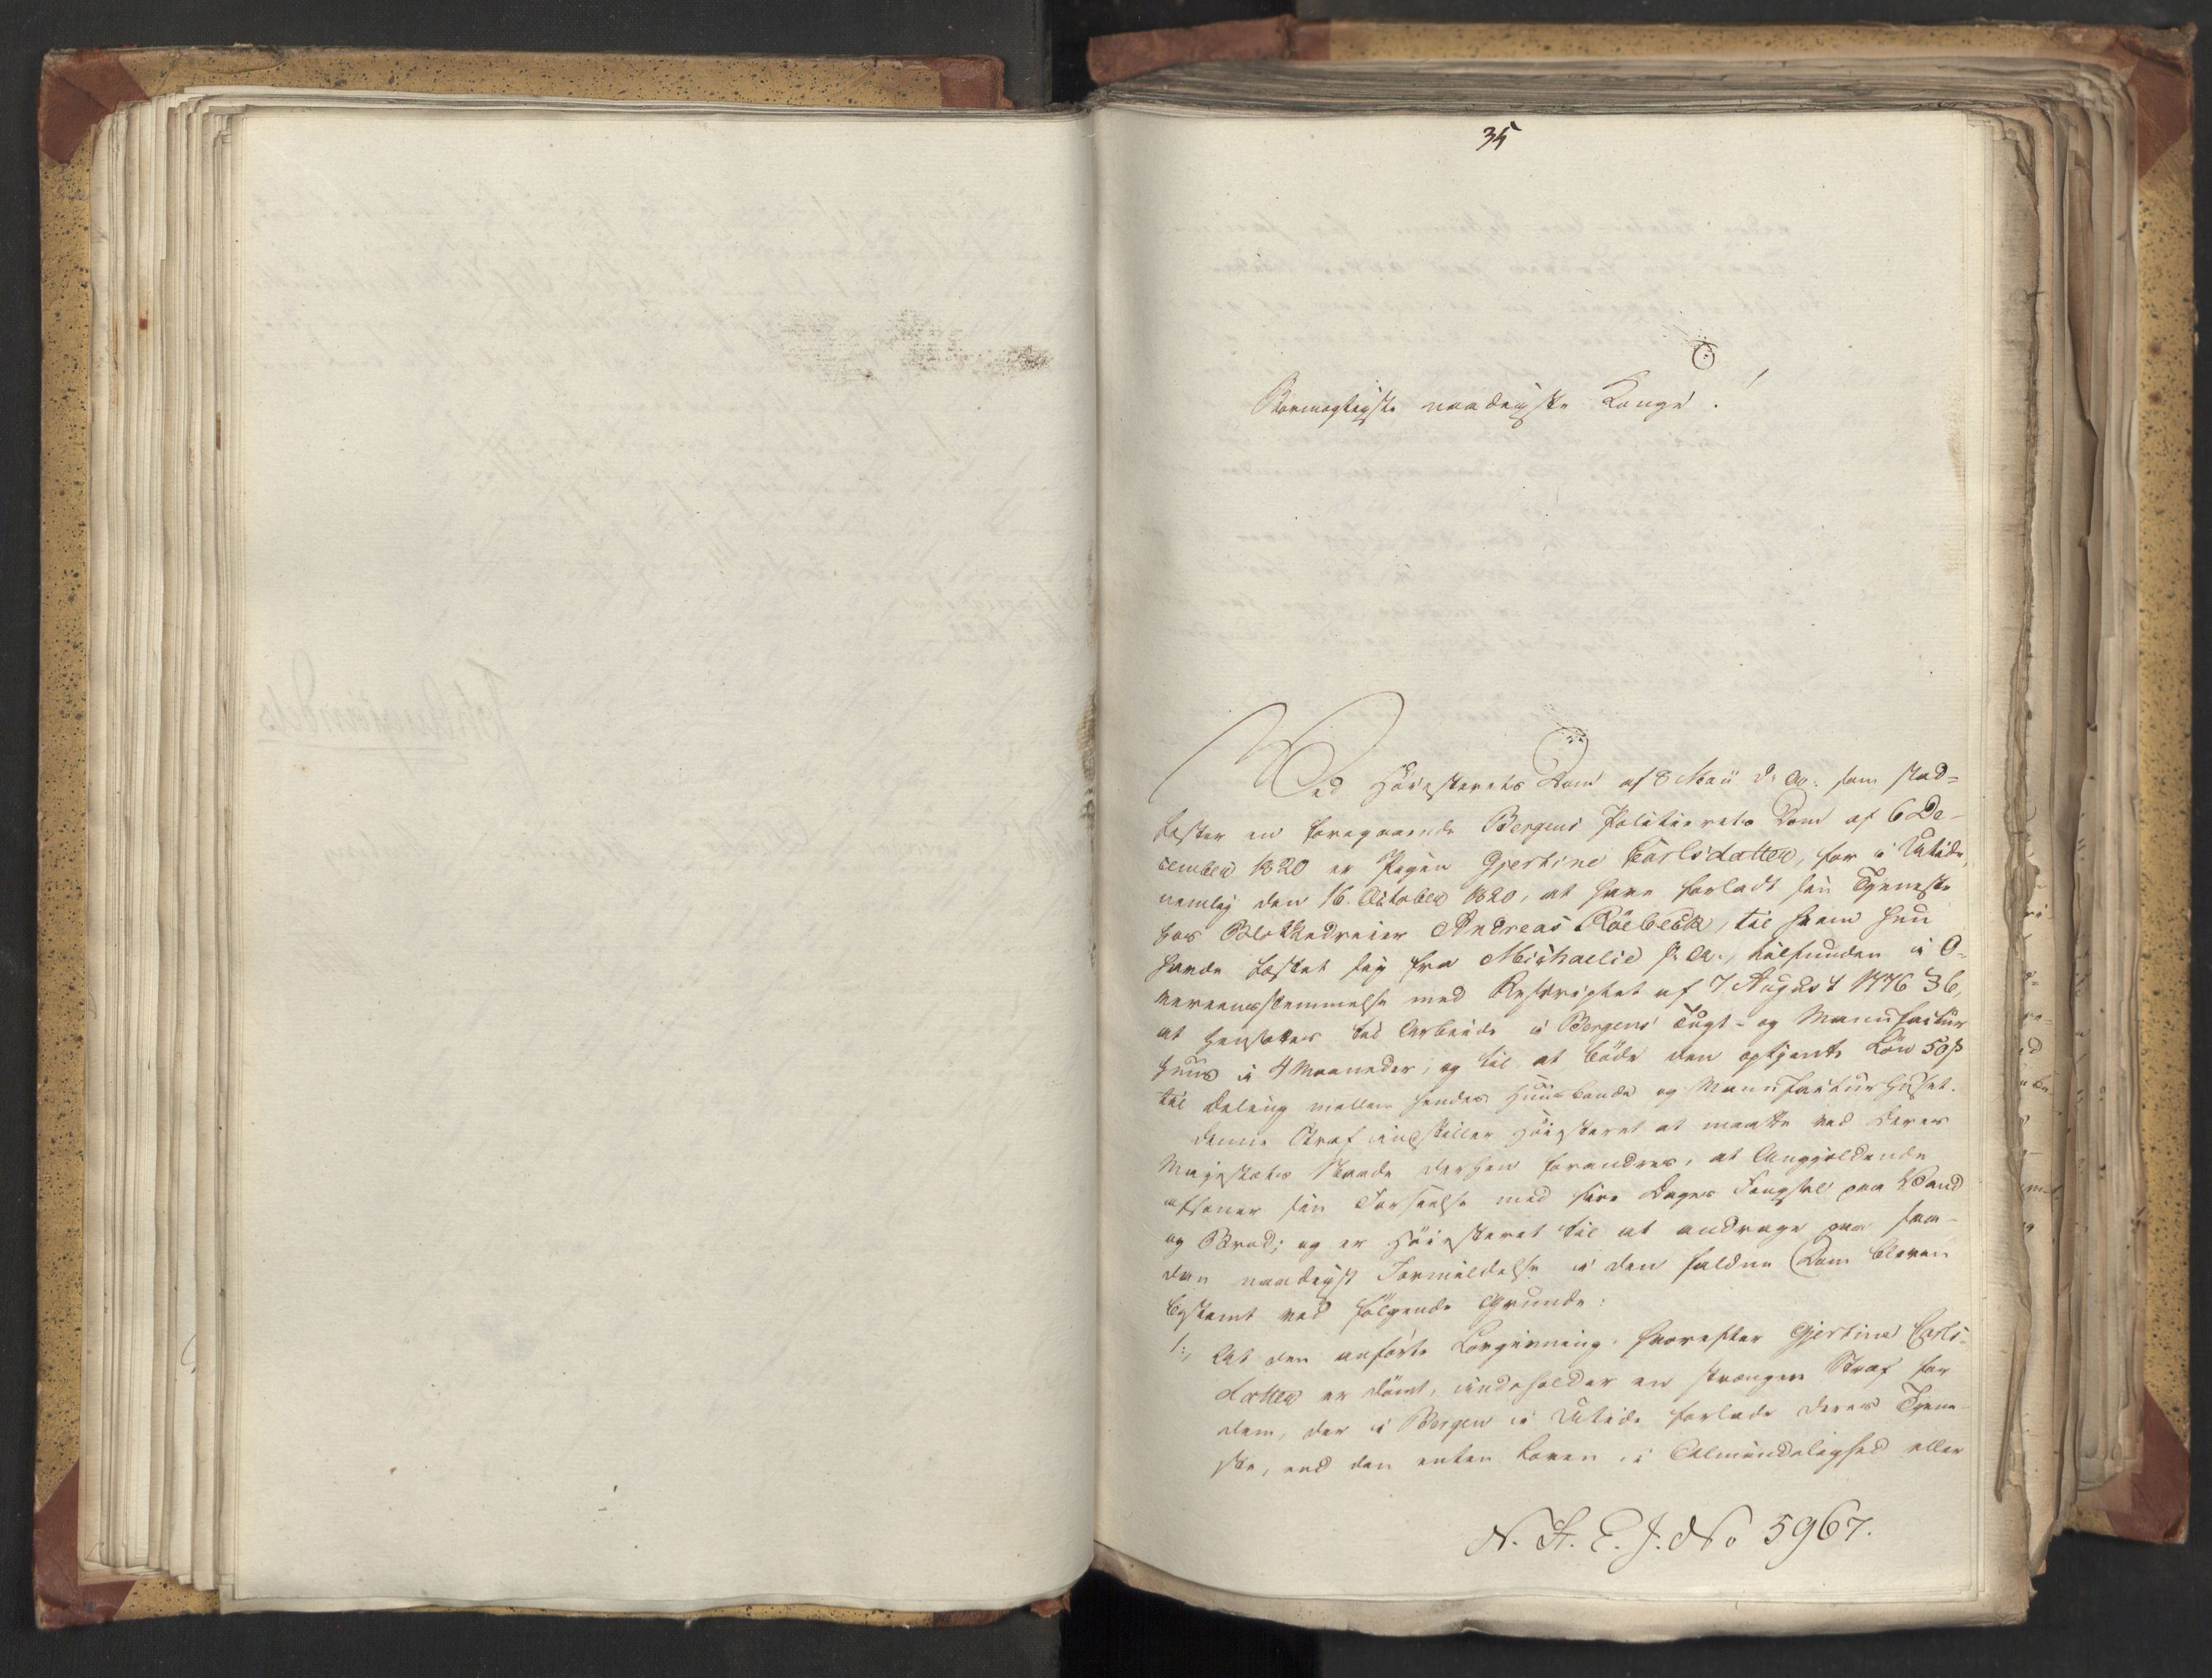 35
Stormægtigste naadigste Konge!
Ved Høiesterets Dom af 8 Maii d: A: som stad=
fæster en foregaaende Bergens Politierets Dom af 6 De-
cember 1820 er Pigen Gjertine Carlsdatter, for i Utide,
nemlig den 16. October 1820, at have forladt sin Tjeneste
hos Blokkedreier Andreas Röebeck, til hvem hun
havde fæstet sig fra Michaelie s. A., tilfunden i O-
vereensstemmelse med Rescriptet af 7 August 1776 § 6,
at hensættes til Arbeide i Bergens Tugt- og Manufactur
huus i 4 Maaneder, og til at bøde den optjente Løn 50 ß
til Deling mellem hendes Huusbonde og Manufacturhuset.
Denne Straf indstiller Høiesteret at maatte ved Deres
Majestæts Naade derhen forandres, at Angjældende
afsoner sin Forseelse med fire Dages Fængsel paa Vand
og Brød; og er Høiesteret til at andrage paa saa-
dan naadigst Formildelse i den faldne Dom bleven
bestemt ved følgende Grunde:
1:, At den anførte Lovgivning, hvorefter Gjertine Carls-
datter er dømt, indeholder en strængere Straf for
dem, der i Bergen i Utide forlade deres Tjene-
ste, end den enten Loven i Almindelighed eller
N. St. E. J. No 5967.